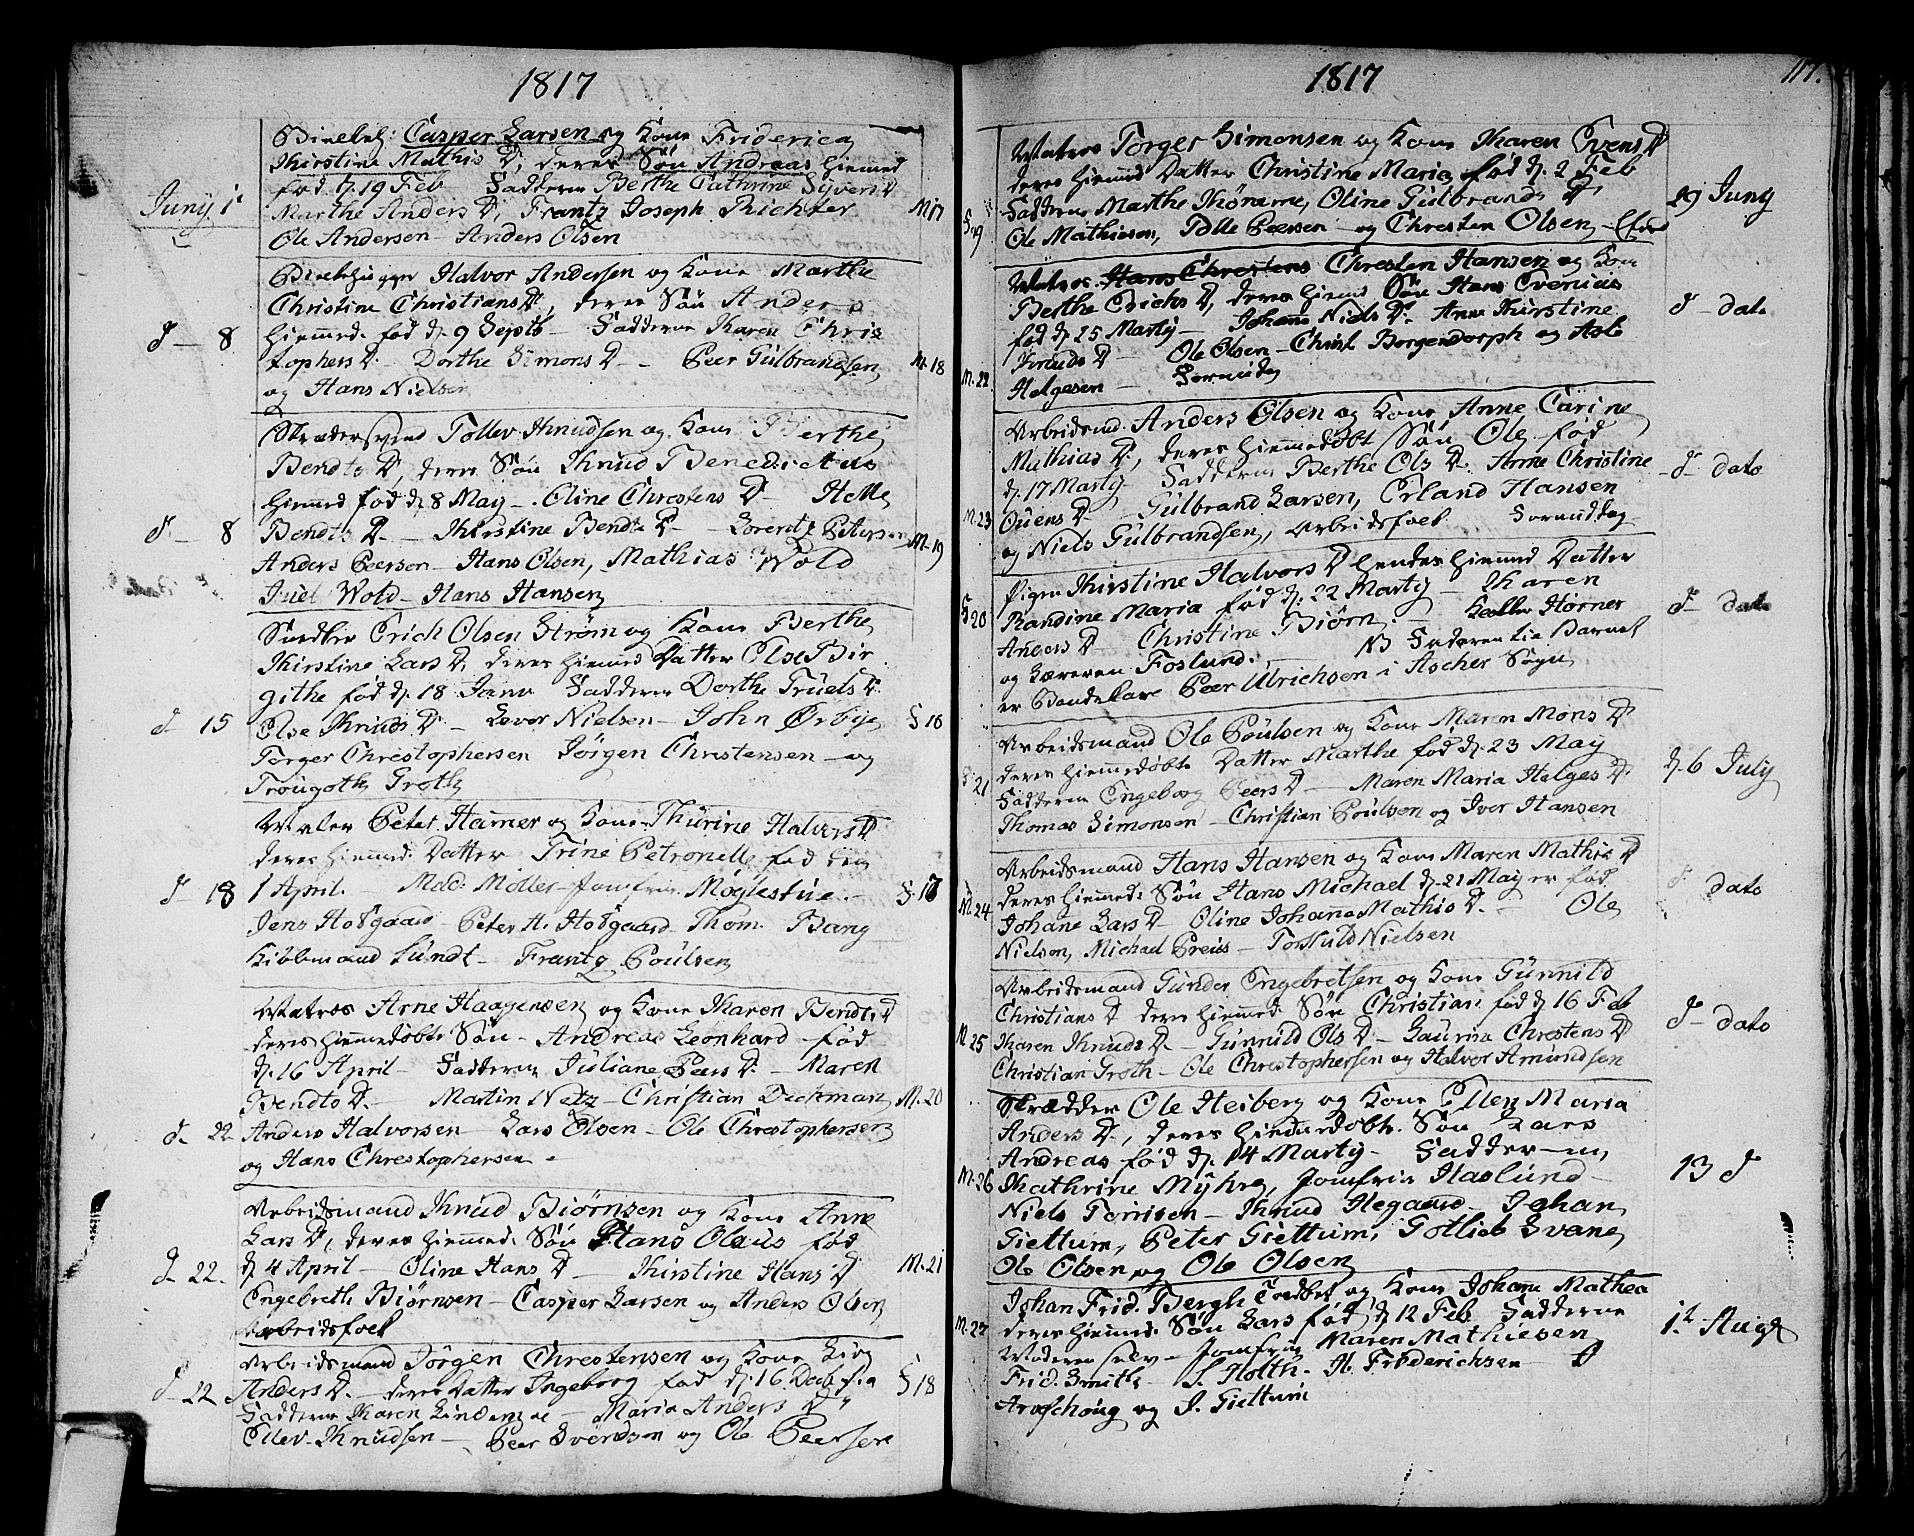 1817
Casper Larsen og Kone Friderica
Kirstine Mathis D. deres Søn Andreas hiemed
fød d. 19 Feb Fadderne Berthe Cathrine Syvers D
Juny 1 Marthe Anders D, Frantz Joseph Richter M 17
Ole Andersen - Anders Olsen
Halvor Andersen og Kone Marthe
Christine Christians D, deres Søn Anders
hiemmed. fød d. 9 Septb - Fadderne Karen Chris
d - 8 tophers D - Dorthe Simons D - Peer Gulbrandsen M. 18
og Hans Nielsen
Skrædersvend Tollev Knudsen og Kone Berthe
Bendts D, deres Søn Knud Benedictus
hiemed fød d. 8 May - Oline Chrestens D - Helle
d. - 8 Bendts D. - Kirstine Bendts D - Lorentz Peterser M. 19
Anders Peersen - Hans Olsen, Mathias Wold
Juel Wold - Hans Hansen
Erich Olsen Strøm og Kone Berthe
Kirstine Lars D, deres hiemed Datter Else Bir
githe fød d. 18 Janu Fadderne Dorthe Truels D
d - 15 Else Knuds D - Levor Nielsen - John Ørbye F 16
Torger Christophersen Jørgen Christensen - og
Trougoth Groth
Maler Peter Hamer og Kone Thurine Halvors D
deres hiemmed. Datter Trine Petronelle fød den
d - 18 1 April. - Mad: Møller - Jomfru Møglestue - F. 17
Jens Hofgaard - Peter H. Hofgaard - Thom. Bang
Kiøbmand Lundt - Frantz Poulsen
Matros Arne Haagensen og Kone Karen Bendts D
deres hiemmedøbte Søn - Andreas Leonhard fød
d. 16 April - Fadderne Juliane Peers D. - Maren
Bendts D. - Martin Netz - Christian Dickman M. 20
d. 22 Anders Halvorsen - Lars Olsen - Ole Christophersen
og Hans Chrestophersen -
Arbeidsmand Knud Biørnsen og Kone Anne
Lars D, deres hiemmed. Søn Hans Olaus fød
d. 22. d. 4 April - Oline Hans D - Kirstine Hans D M. 21
Engebreth Biørnsen - Casper Larsen og Anders Olsen
Arbeidsfolk
Arbeidsmand Jørgen Chrestensen og Kone Siv
d - 22 Anders D. - deres Datter Ingeborg fød d. 16 F 18
Fadderne Karen - Maria Anders D
Ellev Knudsen - Peer Svendsen og Ole Peersen
1817 117.
Matros Torger Simonsen og Kone Karen Evens D
deres hiemed Datter Christine Maria fød d. 2 Feb
F. 19 Fadderne Marthe Oline Gulbrands D, 29 Juny
Ole Mathiesen, Tolle Peersen - og Chresten Olsen -
Matros Hans Chrestens Chresten Hansen og Kone
Berthe Erichs D, deres hiemed Søn Hans Evenius
fød d. 25 Marty - Johanne Niels D. Anne Kirstine d - dato
Knuds D - Ole Olsen - Christ Borgendorph og Asle
M. 22 Helgesen - Formidag
Arbeidsmd. Anders Olsen og Kone Anne Carine
Mathias D, deres hiemmedøbt Søn Ole fød
d. 17 Marty Fadderne Berthe Ols D. Anne Christine d - dato
M. 23 Ouens D - Gulbrand Larsen, Erland Hansen
og Niels Gulbrandsen, Arbeidsfolk Formiddag
Pigen Kirstine Halvors D hendes hiemed Datter
F 20 Randine Maria fød d. 22 Marty - Karen d - dato
Anders D Christine Biørn - Hörner
og Læreren Foslund. - NB Faderen til Barnet
er Bondekarl Peer Ulrichsen i Ascher Sogn
Arbeidsmand Ole Poulsen og Kone Maren Mons D
deres hiemmedøbte Datter Marthe fød d. 23 May d. 6 July
F. 21 Fadderne Engeborg Peers D - Maren Maria Helges D
Thomas Simonsen - Christian Poulsen og Iver Hansen
Arbeidsmand Hans Hansen og Kone Maren Mathis D
deres hiemmed. Søn Hans Michael d. 21 May er fød. d. dato
M. 24 Johane Lars D - Oline Johanne Mathis D. - Ole
Nielsen, Michael Preus - Torkild Nielsen
Arbeidsmand Gunder Engebretsen og Kone Gunnild
Christians D deres hiemmed. Søn Christian fød d 16 Feb
M 25 Karen Knuds D - Gunnild Ols D - Laurina Chrestens D d - dato
Christian Groth - Ole Christophersen og Halvor Amundsen
Skrædder Ole Heiberg og Kone Ellen Maria
Anders D., deres hiemmedøbte Søn Lars
Andreas fød d. 14 Marty - Fadder-ne
M. 26 Kathrine Myhre, Jomfru Haslund - 13 d
Niels Torrisen - Knud Hegaard - Johan
Giettum, Peter Giettum, Gotlieb Svane
Ole Olsen og Ole Olsen
Johan Frid. Bergh og Kone Johane Mathea
M. 27 deres hiemed. Søn Lars fød d 12 Feb. Fadderne 1.t Augt
Moderen selv - Jomfru Maren Mathiesen
Frid. Smith - S. Holth - H. Friderichsen -
Arveschoug og J. Giettum